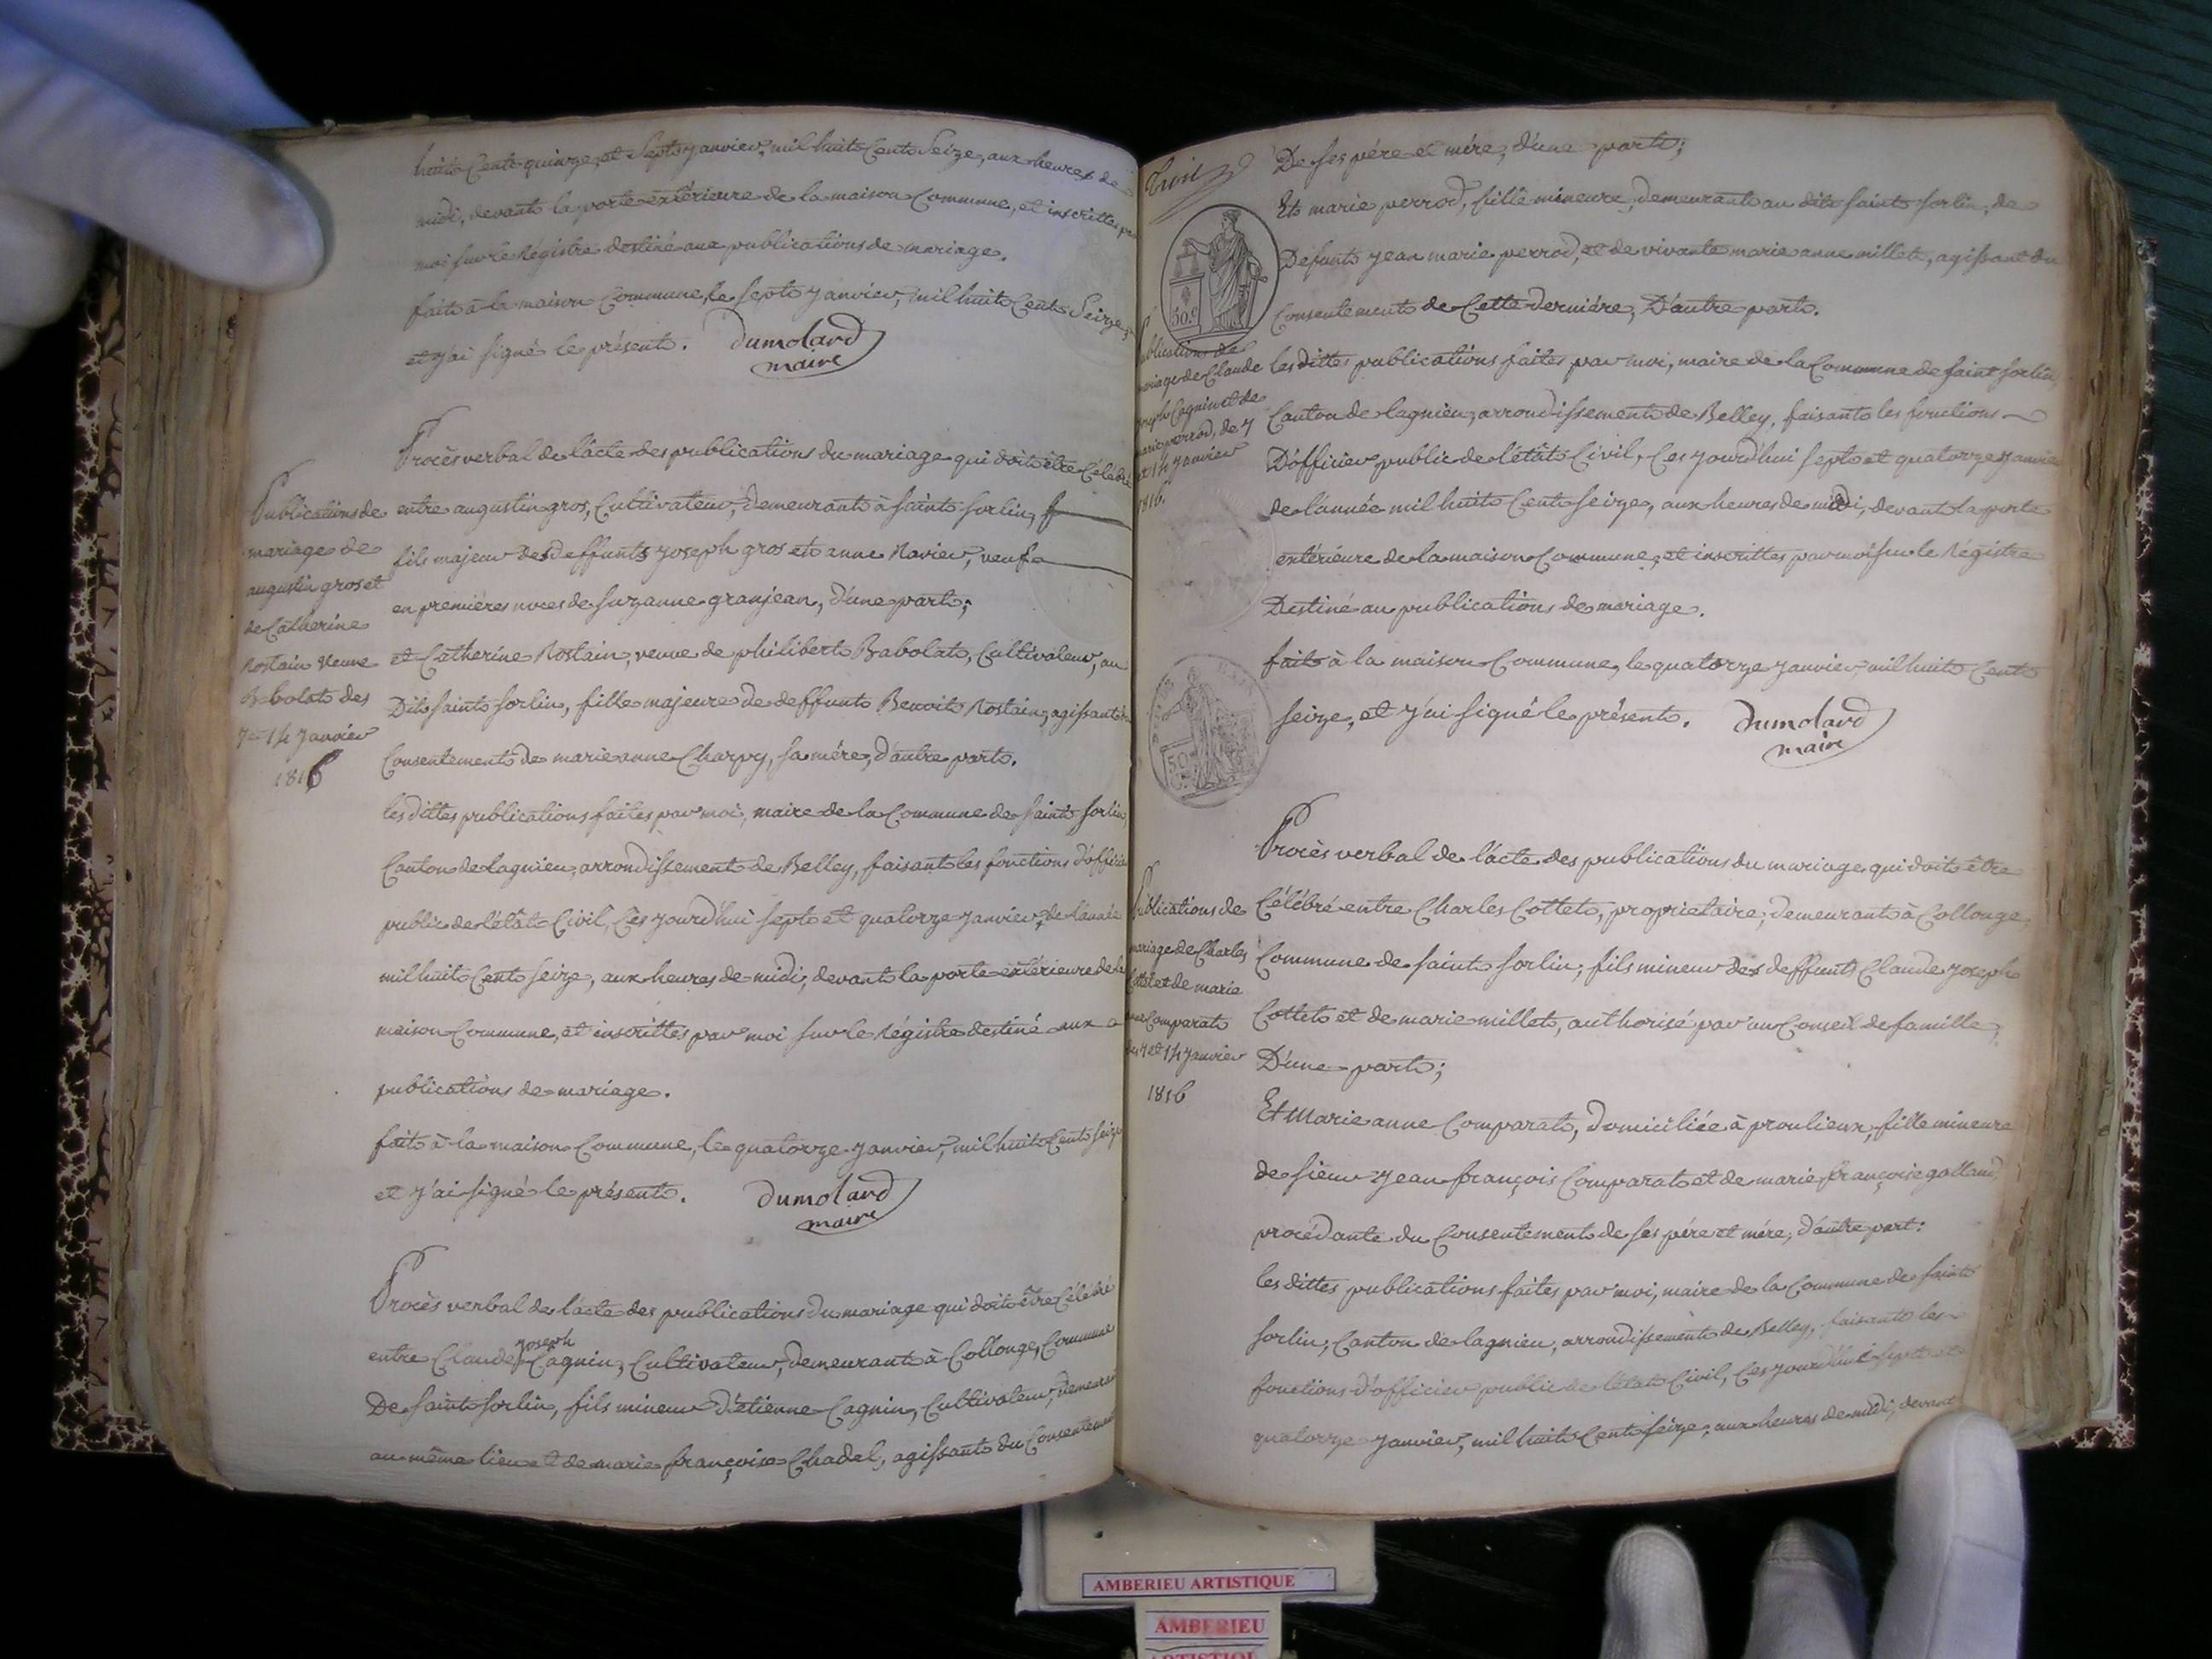 huit Cent quinze, et Sept janvier, mil huit Cent Seize, aux heures de
midi, devant la porte extérieure de la maison Commune, et inscrittes par
moi sur le Régistre destiné aux publications de mariage.
fait à la maison Commune, le sept janvier, mil huit Cent Seize,
et j'ai signé le présent. Dumolard
maire
Publications de
mariage de
augustin gros et
de Catherine
Rostain veuve
Babolat des
7 et 14 Janvier
1816
Procès verbal de l'acte des publications du mariage qui doit être Célébré
entre augustin gros, Cultivateur, demeurant à saint sorlin,
fils majeur des deffunts joseph gros et anne Navier, veuf
en premières noces de suzanne granjean, d'une part;
et Catherine Rostain, veuve de philibert Babolat, Cultivateur, au
Dit saint sorlin, fille majeure de deffunt Benoit Rostain, agissant du
Consentement de marie anne Charpy, sa mère, d'autre part.
les dittes publications faites par moi, maire de la Commune de saint sorlin
Canton de lagnieu, arrondissement de Belley, faisant les fonctions d'officier
public de l'état Civil, Ces jourd'hui sept et quatorze janvier, de l'année
mil huit Cent seize, aux heures de midi, devant la porte extérieure de la
maison Commune, et inscrittes par moi sur le Régistre destiné aux
publications de mariage.
fait à la maison Commune, le quatorze janvier, mil huit Cent seize
et j'ai signé le présent. Dumolard
maire
Procès verbal de l'acte des publications du mariage qui doit être Célébré
entre Claude joseph Cagnin, Cultivateur, demeurant à Collonge, Commune
De saint sorlin, fils mineur d'étienne Cagnin, Cultivateur, demeurant
au même lieu et de marie françoise Chadel, agissant du Consentement
trois
De ses père et mère, d'une part;
Et marie perrod, fille mineure, demeurant au dit saint sorlin, de
Defunt jean marie perrod, et de vivante marie anne millet, agissant du
Consentement de Cette dernière, D'autre part.
50 C
Publications de
mariage de Claude
joseph Cagnin et de
marie perrod, de 7
et 14 janvier
1816.
les dittes publications faites par moi, maire de la Commune de saint sorlin
Canton de lagnieu, arrondissement de Belley, faisant les fonctions
D'officier public de l'état Civil, Ces jourd'hui sept et quatorze janvier
de l'année mil huit Cent seize, aux heures de midi, devant la porte
extérieure de la maison Commune, et inscrittes par moi sur le Régistre
Destiné au publications de mariage.
fait à la maison Commune, le quatorze janvier, mil huit Cent
seize, et j'ai signé le présent. Dumolard
maire
50
Publications de
mariage de Charles
Cottet et de marie
anne Comparat
des 7 et 14 janvier
1816
Procès verbal de l'acte des publications du mariage qui doit être
Célébré entre Charles Cottet, propriétaire, demeurant à Collonge,
Commune de saint sorlin, fils mineur des deffunts Claude joseph
Cottet et de marie millet, authorisé par un Conseil de famille,
D'une part;
Et Marie anne Comparat, domiciliée à proulieux, fille mineure
de sieur jean françois Comparat et de marie françoise golland,
procédante du Consentement de ses père et mère, d'autre part:
les dittes publications faites par moi, maire de la Commune de saint
sorlin, Canton de lagnieu, arrondissement de Belley, faisant les
fonctions d'officier public de l'état Civil, Ces jourd'hui sept et
quatorze janvier, mil huit Cent seize, aux heures de midi, devant
AMBERIEU ARTISTIQUE
AMBERIEU
ARTISTIQUE